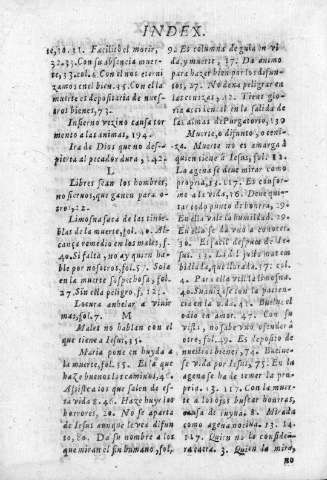 INDEX.
te, 10. 11. Facilitó el morir,
32. 33. Con su absencia muer-
te, 33. col. 6 Con el nos eterni
zamos en el bien. 45. Con ella
muerte es depositaria de nues-
tros bienes, 73.
Infierno vezino causa tor-
mento a las animas, 194.
Ira de Dios que no des-
pierta al pecador dura, 142.
L
Libres sean los hombres,
no siernos, que ganen para o-
tro, 122.
Limosna saca de las tinie-
blas de la muerte, fol. 40. Al-
cança remedio en los males, f.
40. Si falta, no ay quien ha-
ble por nosotros, fol. 57. Sola
en la muerte sospechosa, fol.
27. Sin ella peligro, f. 125.
Locura anhelar a vivir
mas, fol. 7.
M
Males no hablan con el
que tiene a Iesus, 35.
Maria pone en huyda a
la muerte, fol. 55. El à que
haze buenos los caminos, 46.
Assistica los que salen de es-
ta vida 8. 46. Haze huyr los
horrores, 20. No se aparta
de Iesus aunque le vea difun-
to, 80. Da su nombre a los
que miran el sin humano, fol,
9. Es columna de guia en vi
da, y muerte, 37. Da animo
para hazer bien por los difun-
tos, 27. No dena peligrar en
las cenizas, 42. Tiene glo-
ria accid en el en la salida de
las almas de Purgatorio, 130
Muerte, o difunto, o ceni-
za. Muerte no es amarga à
quien tiene à Iesus, fol. 12.
La agena se deue mirar como
propria, 15. 117. Es confor-
me a la vida, 76. Deue qui-
tar todo punto de honra, 29.
En ella vale la humildad. 29.
En ella se da vno a conocer.
30. Es facil despues de Ie-
sus. 13.
4. Para ella
40.
ciencia en la vida. 41. Buelue el
odio en amor. 47. Con su
vista, no sabe vno ofender à
otre, fol. 49. Es deposito de
nuestros bienes, 74. Buelue-
se vida por Iesus, 75. En la
agena se ha de temer la pro-
pria. 13. 117. Con la muer-
te a los ojos buscar honras,
causa de injuria. 8. Mirada
como agena nociva. 13. 14.
117. Quien no la considé-
ra acerta. 3. Quien la mira,
no